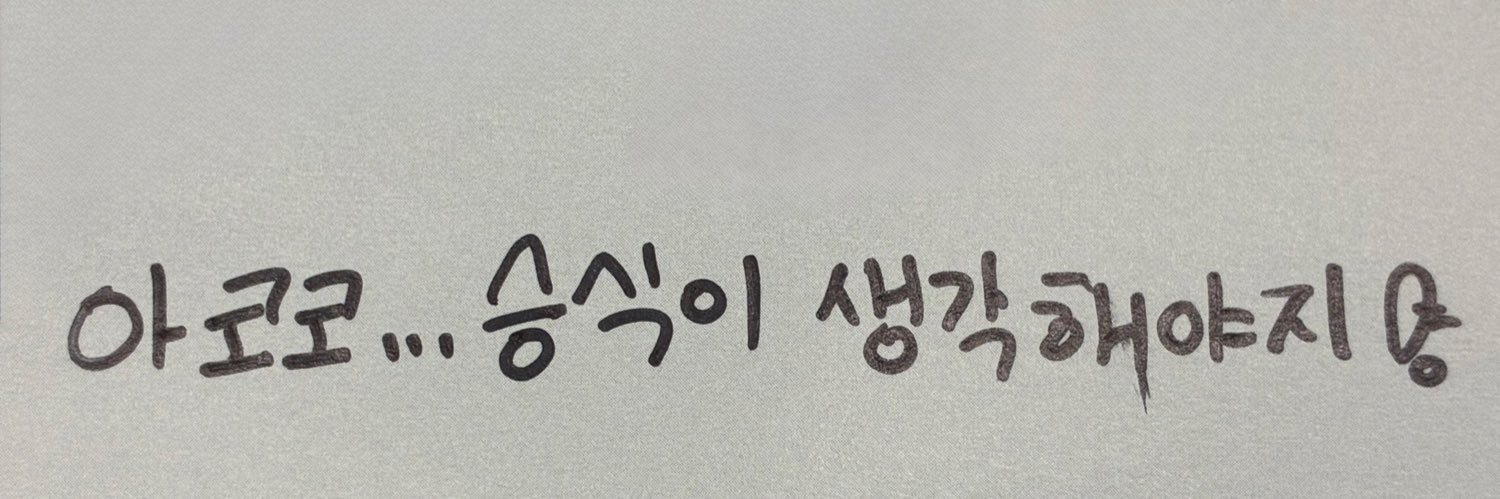 아코코...승식이 생각해야지 양